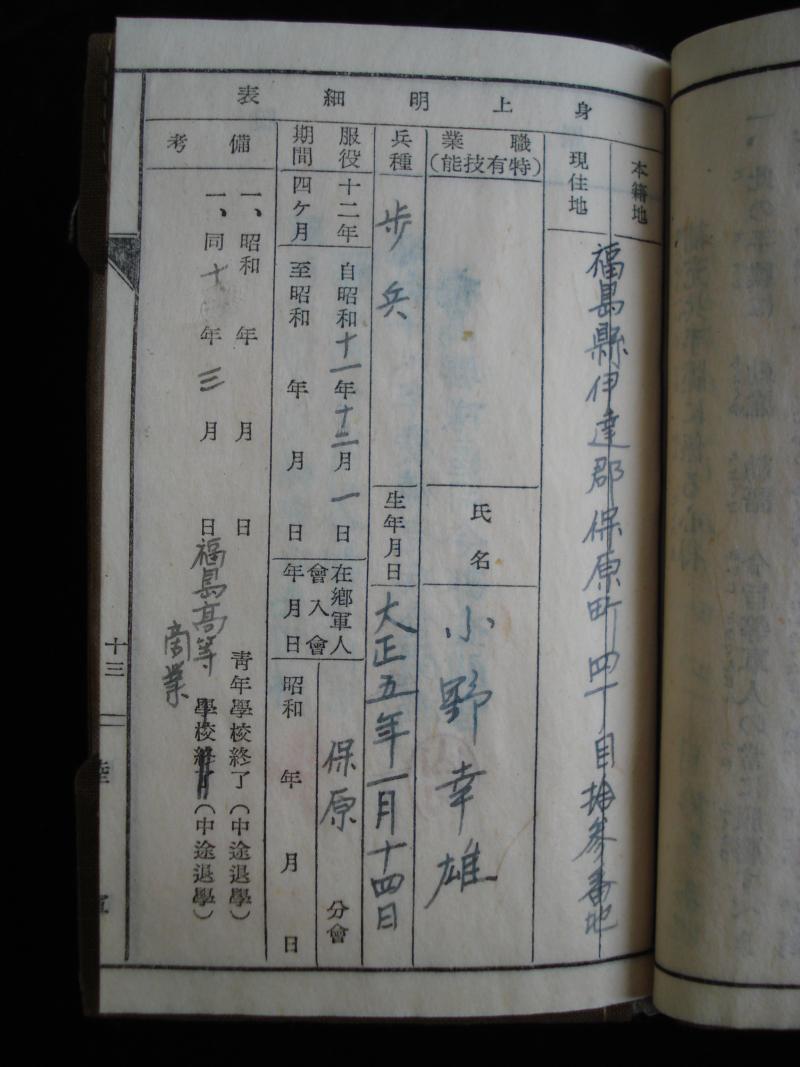 身上明細表
本籍地
現住地
福島縣伊達郡保原町四丁目拾参番地
職業
(特有技能)
氏名
小野幸雄
兵種
歩兵
生年月日
大正五年一月十四日
服役期間
十二年四ケ月
自昭和十一年十二月一日
至昭和 年 月 日
在郷軍人會入會年月日
保原 分會
昭和 年 月 日
備考
一、昭和 年 月 日 青年學校終了(中途退學)
一、同十 年三月 日 福島高等商業 學校 (中途退學)
十三